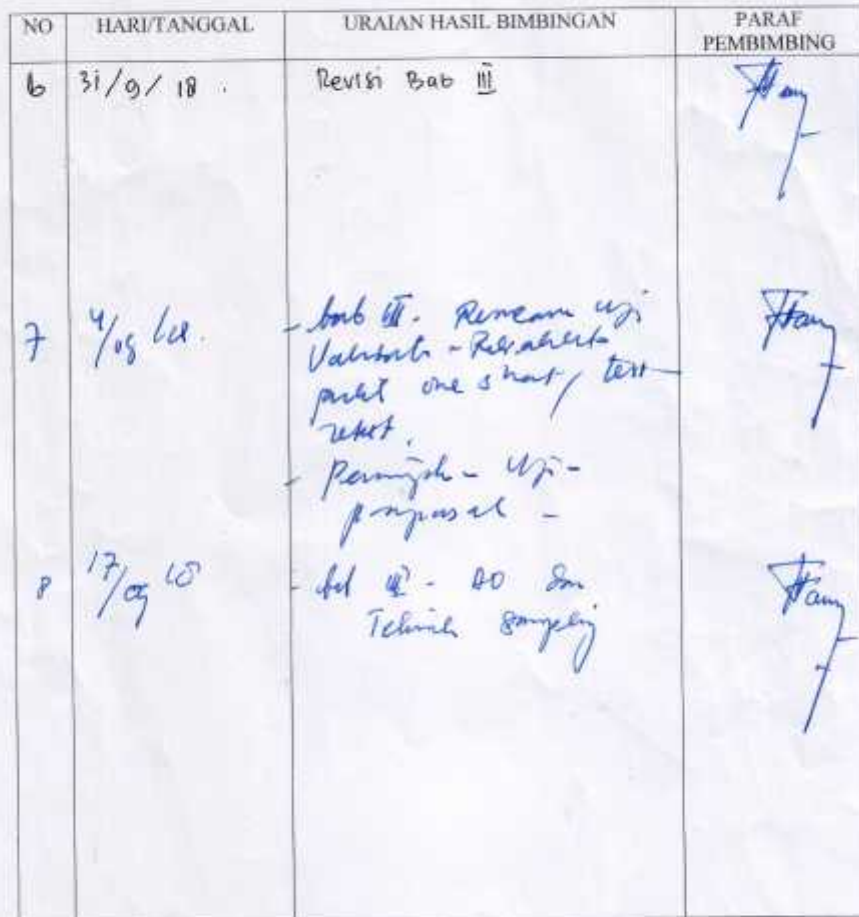 NO HARI/TANGGAL URAIAN HASIL BIMBINGAN PARAF PEMBIMBING
6 31/9/18. Revisi Bab III
7 4/09 - bab III. Rencana Uji
Validitas - Reliabilitas
one shot / test
retest.
- Uji -
proposal -
8 17/09 - bab III - DO dan
Teknik Sampling